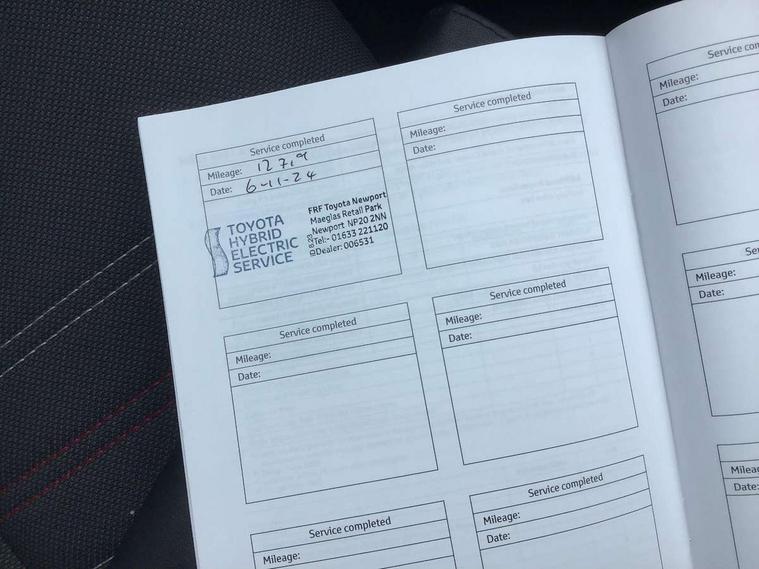 Service completed
Mileage: 12719
Date: 6-11-24
TOYOTA
HYBRID
ELECTRIC
SERVICE
FRF Toyota Newport
Maeglas Retail Park
Newport NP20 2NN
Tel:- 01633 221120
Dealer: 006531
Service completed
Mileage:
Date:
Service completed
Mileage:
Date:
Service completed
Mileage:
Date:
Service completed
Mileage:
Service completed
Mileage:
Date:
Mileage:
Date:
Mileage:
Date:
Date: